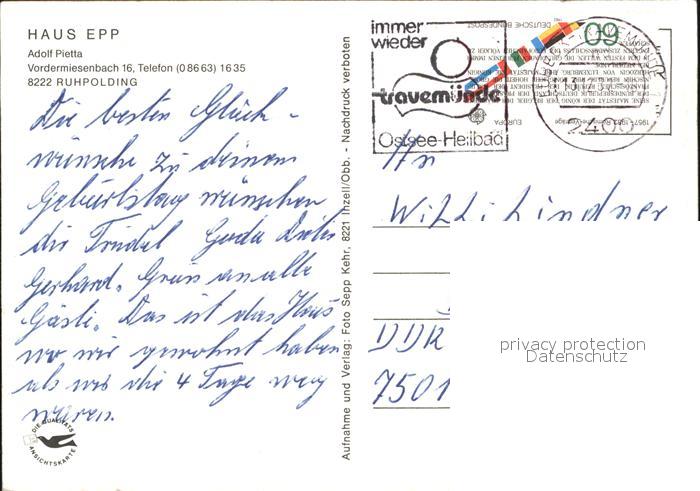 HAUS EPP
Adolf Pietta
Vordermiesenbach 16, Telefon (0 86 63) 16 35
8222 RUHPOLDING
Die besten Glück-
wünsche zu deinem
Geburtstag wünschen
dir Trudel
Gerhard. Gruß an alle
Gästi. Das ist das Haus
wo wir gewohnt haben
als wir die 4 Tage weg
waren.
DIE QUALITÄTS
ANSICHTSKARTE
Aufnahme und Verlag: Foto Sepp Kehr, 8221 Inzell/Obb. - Nachdruck verboten
immer
wieder
travemünde
Ostsee-Heilbad
DEUTSCHE BUNDESPOST
60
EUROPA
1957-1982 Römische Verträge
2400
An
Willi Lindner
DDR
7501
privacy protection
Datenschutz